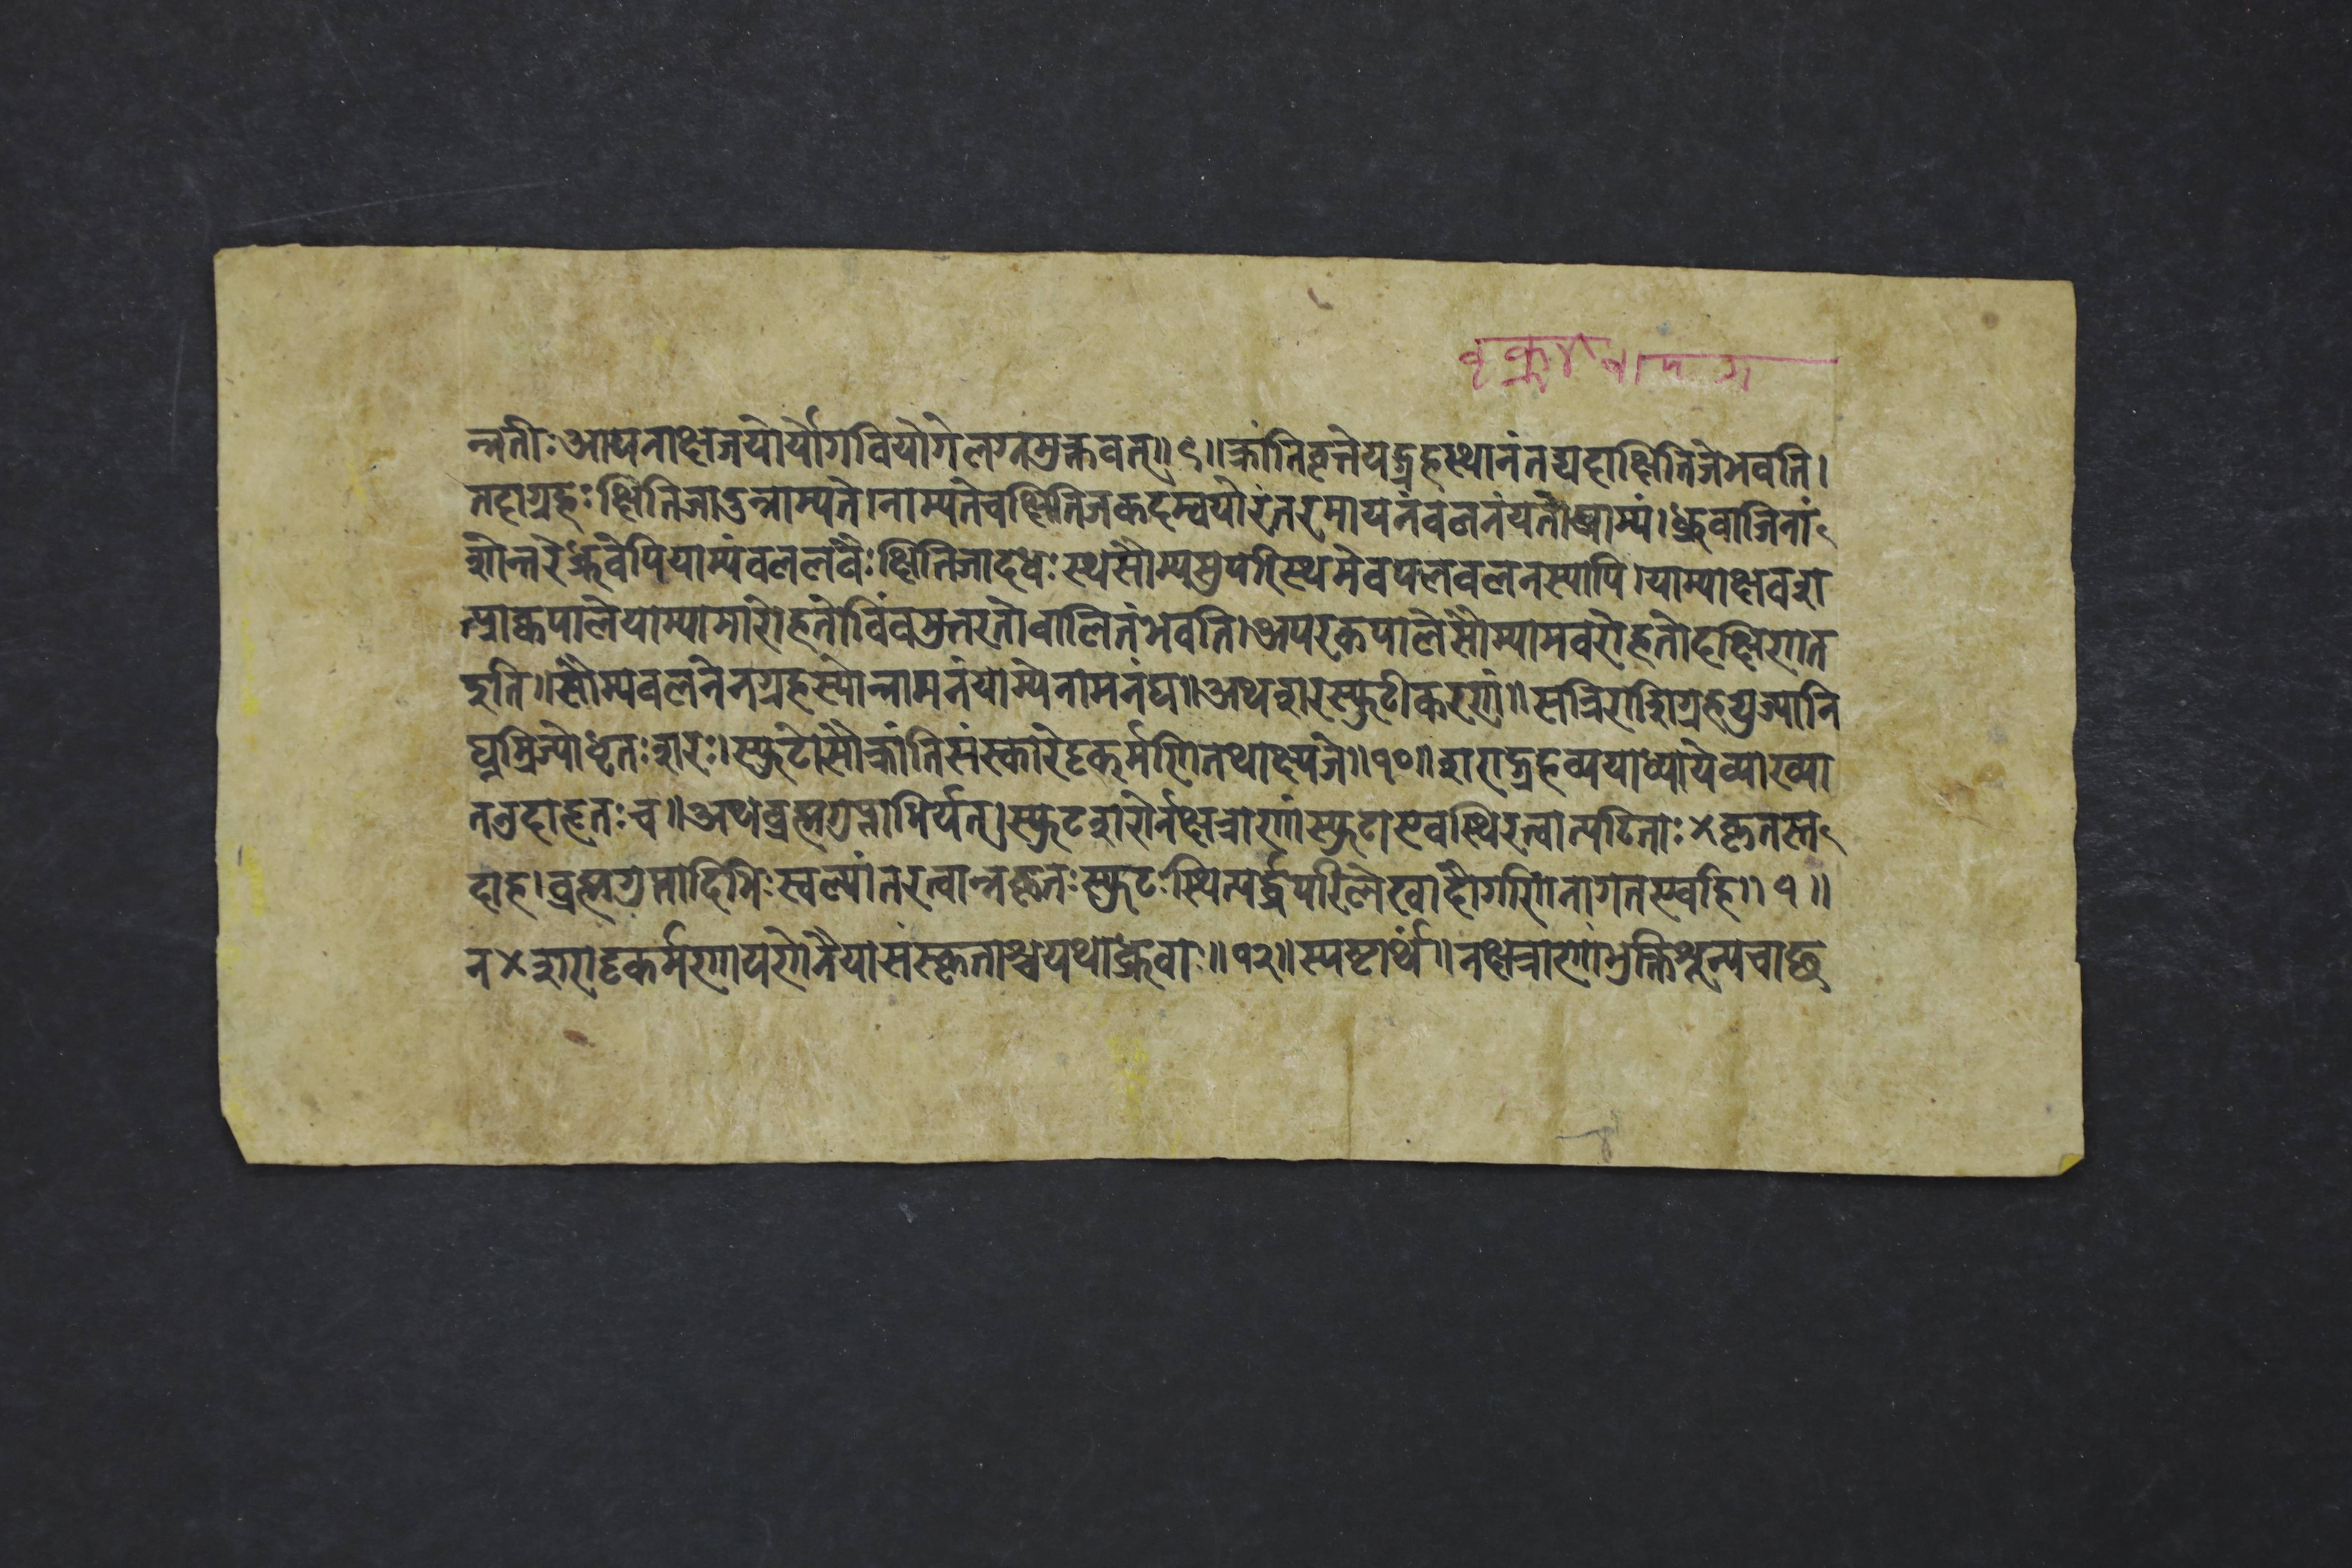 न्नतीः आयनाक्षजयोर्योगवियोगेलग्नमुक्तवत्॥९॥क्रांतिवृत्तेयद्ग्रहस्थानंतद्यदाक्षितिजेभवति।
तदाग्रहःक्षितिजाउन्नाम्यते।नाम्यतेचक्षितिजकदम्वयोरंतरमायनंवलनंयतौघ्राम्यं।ध्रुवाजिनां
शेन्तरेध्रुवेपियाम्यंवललंवैःक्षितिजादधःस्थंसौम्यमुपरिस्थमेवपलवलनस्यापि।याम्याक्षवशा
त्प्राक्कपालेयाम्यामारोहतोविंवमुत्तरतोवालितंभवति।अपरकपालेसौम्यामवरोहतोदक्षिणत
इति॥सौम्यवलनेनग्रहस्योन्नामनंयाम्येनामनंघ॥अथशरस्फुटीकरणं॥सत्रिराशिग्रहद्युज्यानि
घ्नस्त्रिज्योधृतःशरः।स्फुटोसौक्रांतिसंस्कारेदृक्कर्मणितथाक्षजे॥१०॥शराद्ग्रहव्ययाध्यायेव्याख्या
तउदाहृतःच॥अथब्रह्मगुप्ताभिर्यत्।स्फुटशरोर्नक्षत्राणांस्फुटाएवस्थिरत्वात्पठिताः×कृतस्त
दाह।ब्रह्मगुप्तादिभिःस्वल्पांतरत्वान्नकृतःस्फुटःस्थित्यर्द्धपरिलेखादौगणितागतएवहि॥१॥
न×शरादृक्कर्मणायरोनैयासंस्कृताश्चयथाध्रुवाः॥१२॥स्पष्टार्थं॥नक्षत्राणांभुक्तिशून्यचाछ